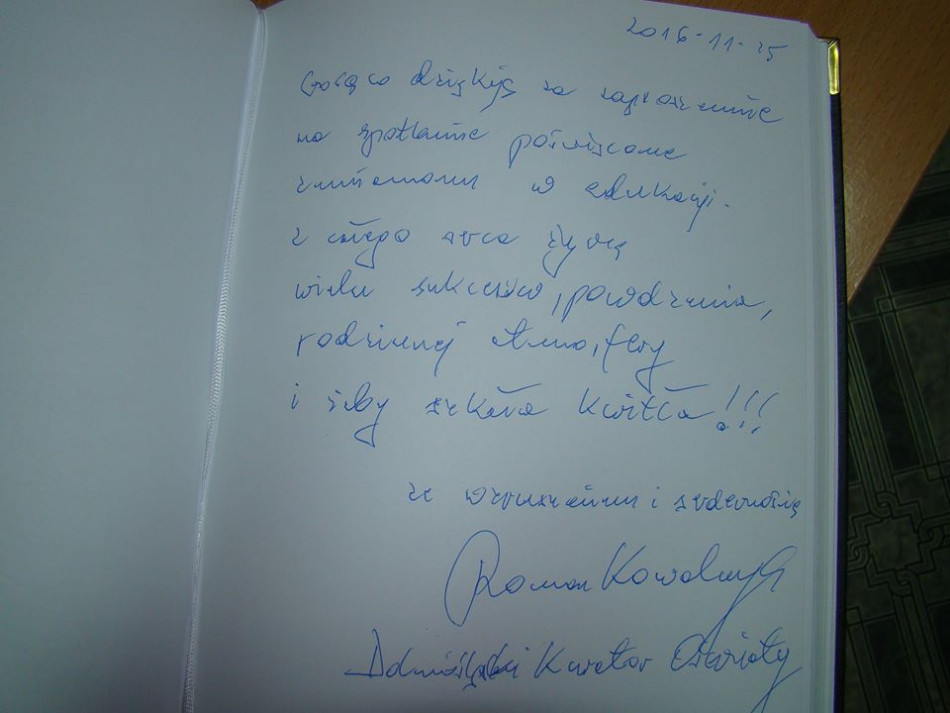 2016-11-25
Gorąco dziękuję za zaproszenie
na spotkanie poświęcone
zmianom w edukacji.
Z całego serca życzę
wielu sukcesów, powodzenia,
rodzinnej atmosfery
i żeby szkoła kwitła!!!
ze wzruszeniem i serdecznością
Roman Kowalczyk
Dolnośląski Kurator Oświaty